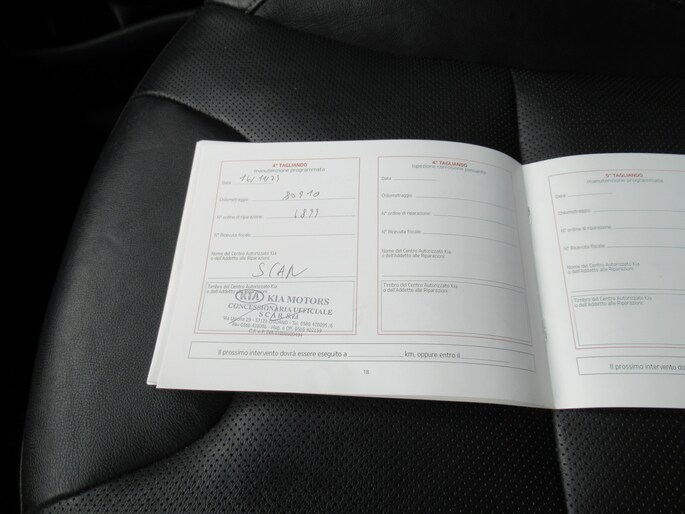 4° TAGLIANDO
manutenzione programmata
Data
Chilometraggio 80910
N° ordine di riparazione 1891
N° Ricevuta fiscale
Nome del Centro Autorizzato Kia
o dell'Addetto alle Riparazioni
SCAR
Timbro del Centro Autorizzato Kia
o dell'Addetto alle Riparazioni
KIA KIA MOTORS
CONCESSIONARIA UFFICIALE
4° TAGLIANDO
Data
Chilometraggio
N° ordine di riparazione
N° Ricevuta fiscale
Nome del Centro Autorizzato Kia
o dell'Addetto alle Riparazioni
Timbro del Centro Autorizzato Kia
o dell'Addetto alle Riparazioni
Il prossimo intervento dovrà essere eseguito a km, oppure entro il
18
5° TAGLIANDO
manutenzione programmata
Data
Chilometraggio
N° ordine di riparazione
N° Ricevuta fiscale
Nome del Centro Autorizzato Kia
o dell'Addetto alle Riparazioni
Timbro del Centro Autorizzato Kia
o dell'Addetto alle Riparazioni
Il prossimo intervento dovrà